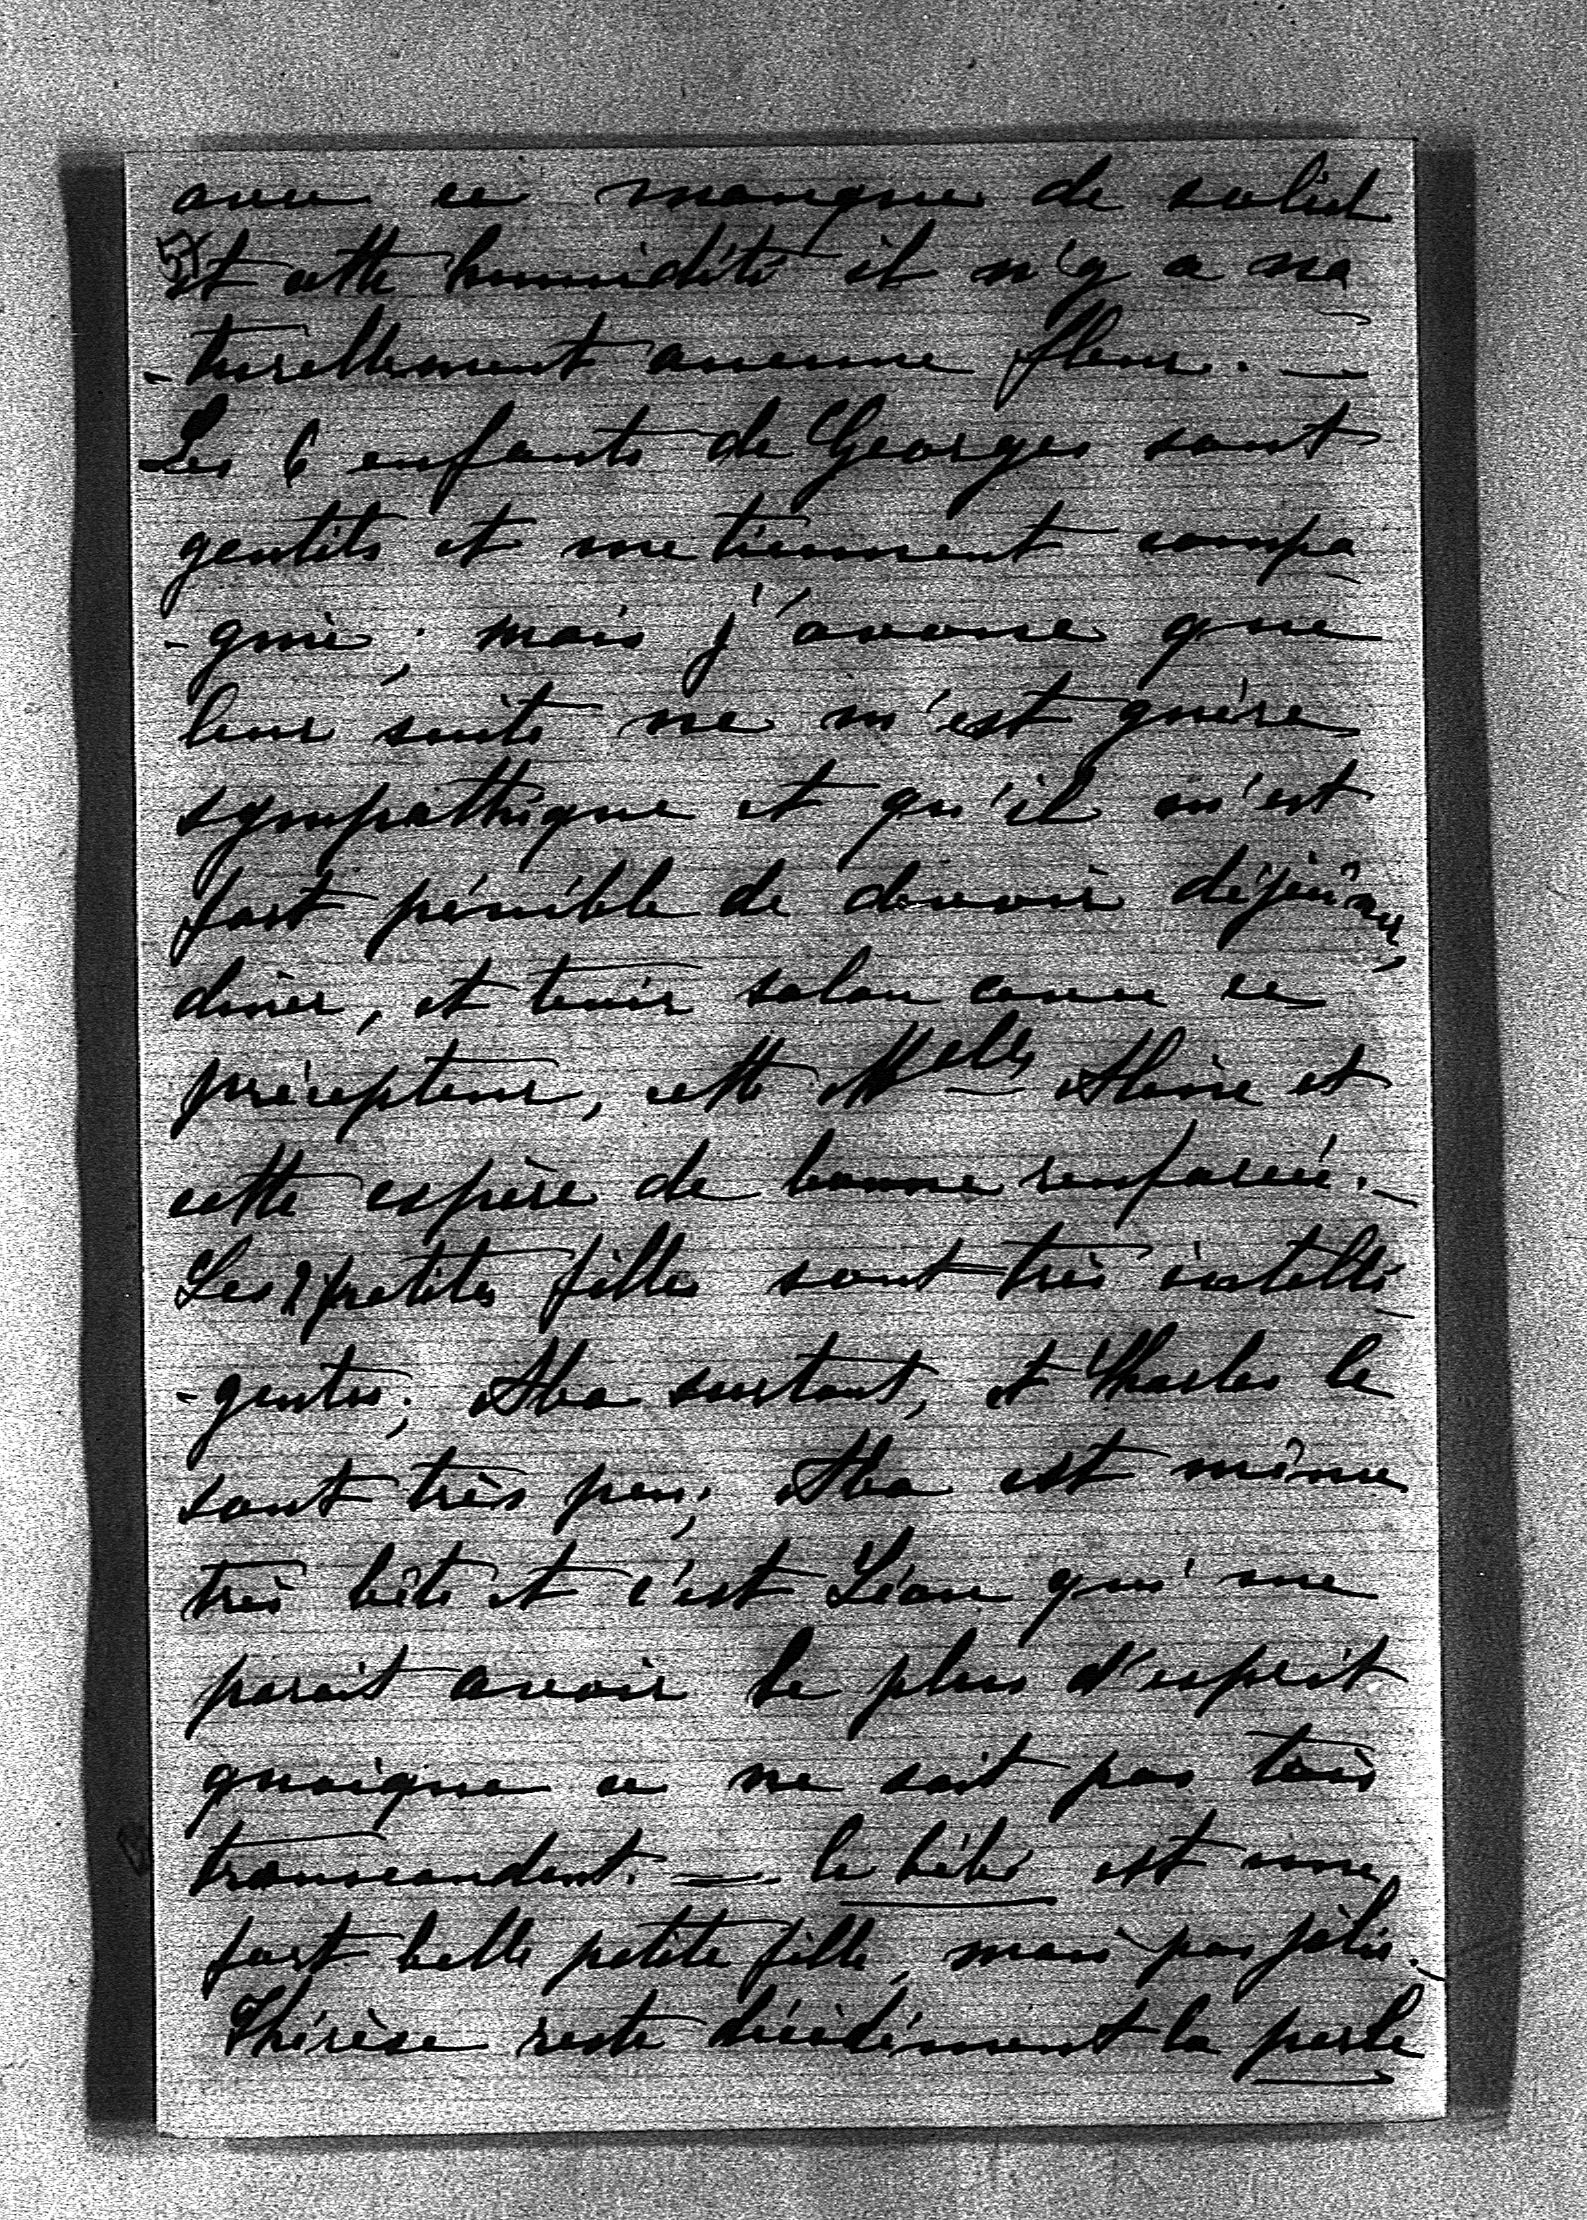 avec ce manque de soleil
57
et cette humidité il n'y a na
-turellement aucune fleur. —
Les 6 enfants de Georges sont
gentils et me tiennent compa
-gnie; mais j'avoue que
leur suite ne m'est guère
sympathique et qu'il m'est
fort pénible de devoir déjeûner,
diner, et tenir salon avec ce
précepteur, cette Melle Aline et
cette espèce de bonne renforcée. —
Les 2 petites filles sont très intelli
-gentes; Aba surtout, et Charles le
sont très peu; Aba est même
très bête et c'est Léon qui me
parait avoir le plus d'esprit
quoique ce ne soit pas très
transcendant. = le bébé est une
fort belle petite fille, mais pas jolie. —
Thérèse reste décidément la perle